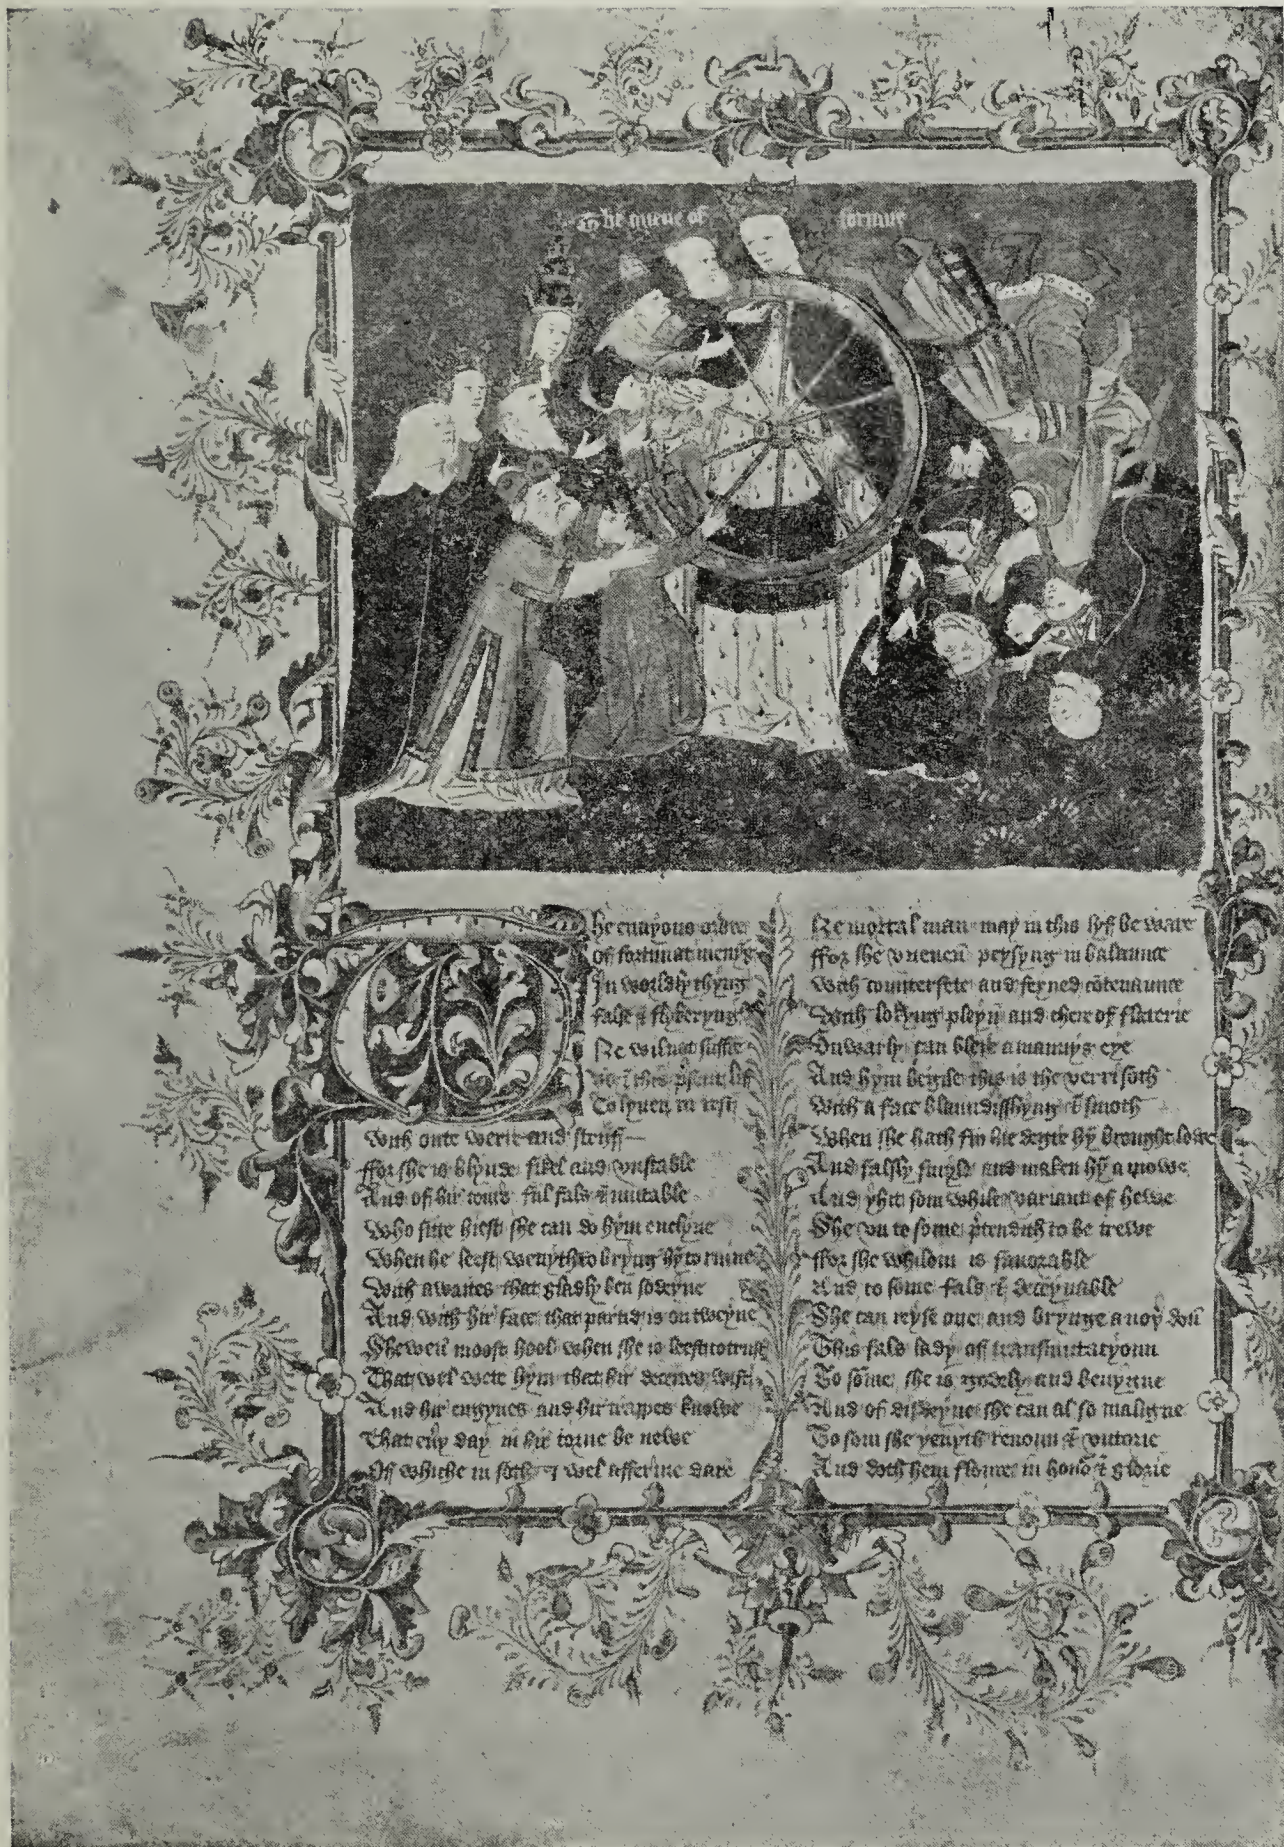 The quene of fortune
The enuyous ordre
of fortunat meuyng
In worldly thyng
false & flykeryng
Ne wil not suffre
vs ī this psent lif
To lyuen in rest
With oute werre and stryff
ffor she is blynde fikel and vnstable
And of hir cours ful fals & mutable
Who sitte hiest she can do hym enclyne
When he leest wenyth to bryng hȳ to ruine
With awaites that gladly ben sodeyne
And with hir face that partid is on tweyne
Shewen moost hool when she is leest to trust
That wel were hym that hir deceites wist
And hir engynes and hir trappes knowe
That eūy day in hir torne be newe
Of whiche in soth I wel afferme dare
Ne mortal man may in this lyff be ware
ffor she vneuen peysyng in balaunce
With counterfete and feyned cōtenaunce
With lokyng pleyn and chere of flaterie
Vnwarly can blere a mannys eye
And hym begile this is the verri soth
With a face blaundisshyng & smoth
When she hath fro hie degre hȳ brought lowe
And falsly smyle and maken hȳ a mowe
And yhit som while variant of hewe
She vn to some ptendith to be trewe
ffor she whilom is fauorable
And to some fals & deceyuable
She can reyse one and brynge a noyꝰ doū
This fals lady off transmutacyoun
To some she is goodly and benygne
And of disdeyne she can al so maligne
To som she yeuyth renoun & victorie
And doth hem floure in honoꝰ & glorie